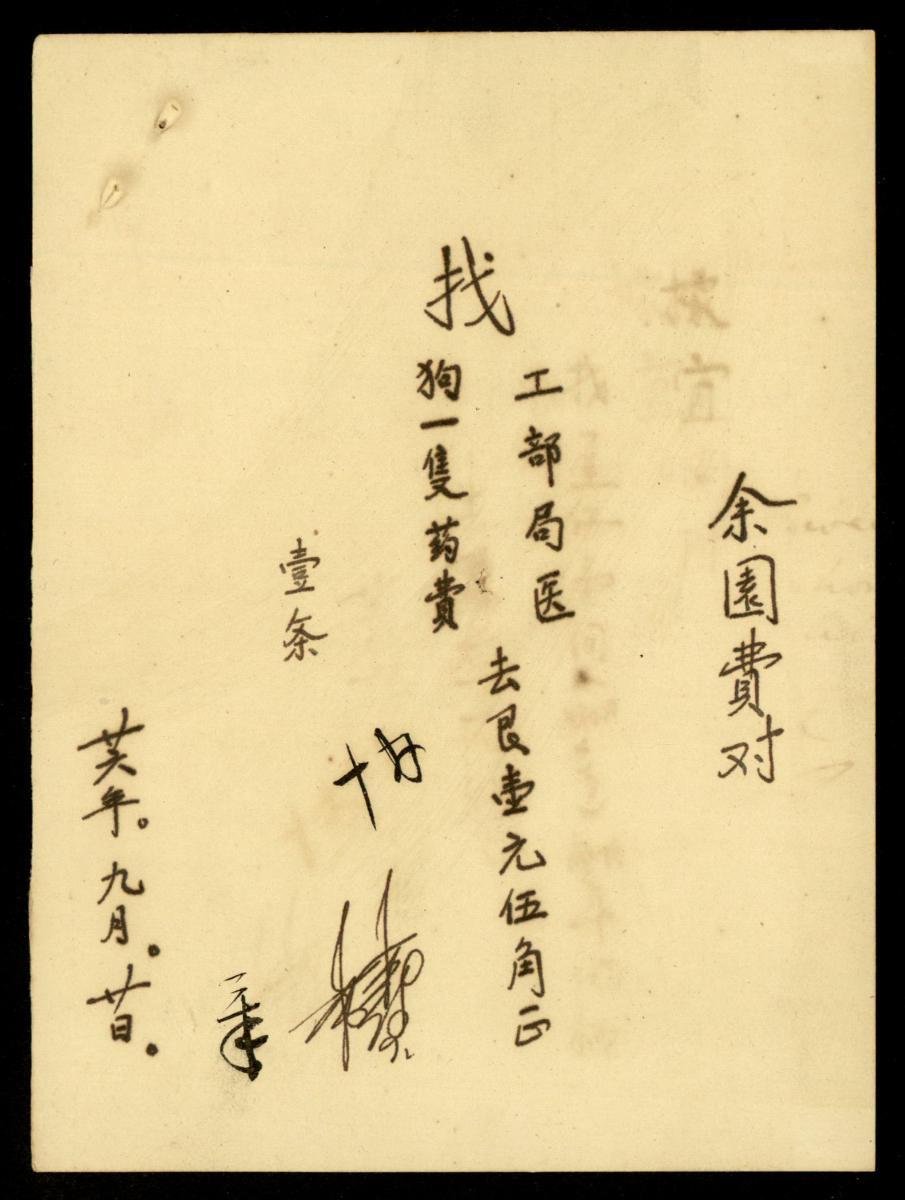 余園費对
找
工部局医
狗一隻药費
去艮壹元伍角正
壹条
廿六年。九月。廿日。